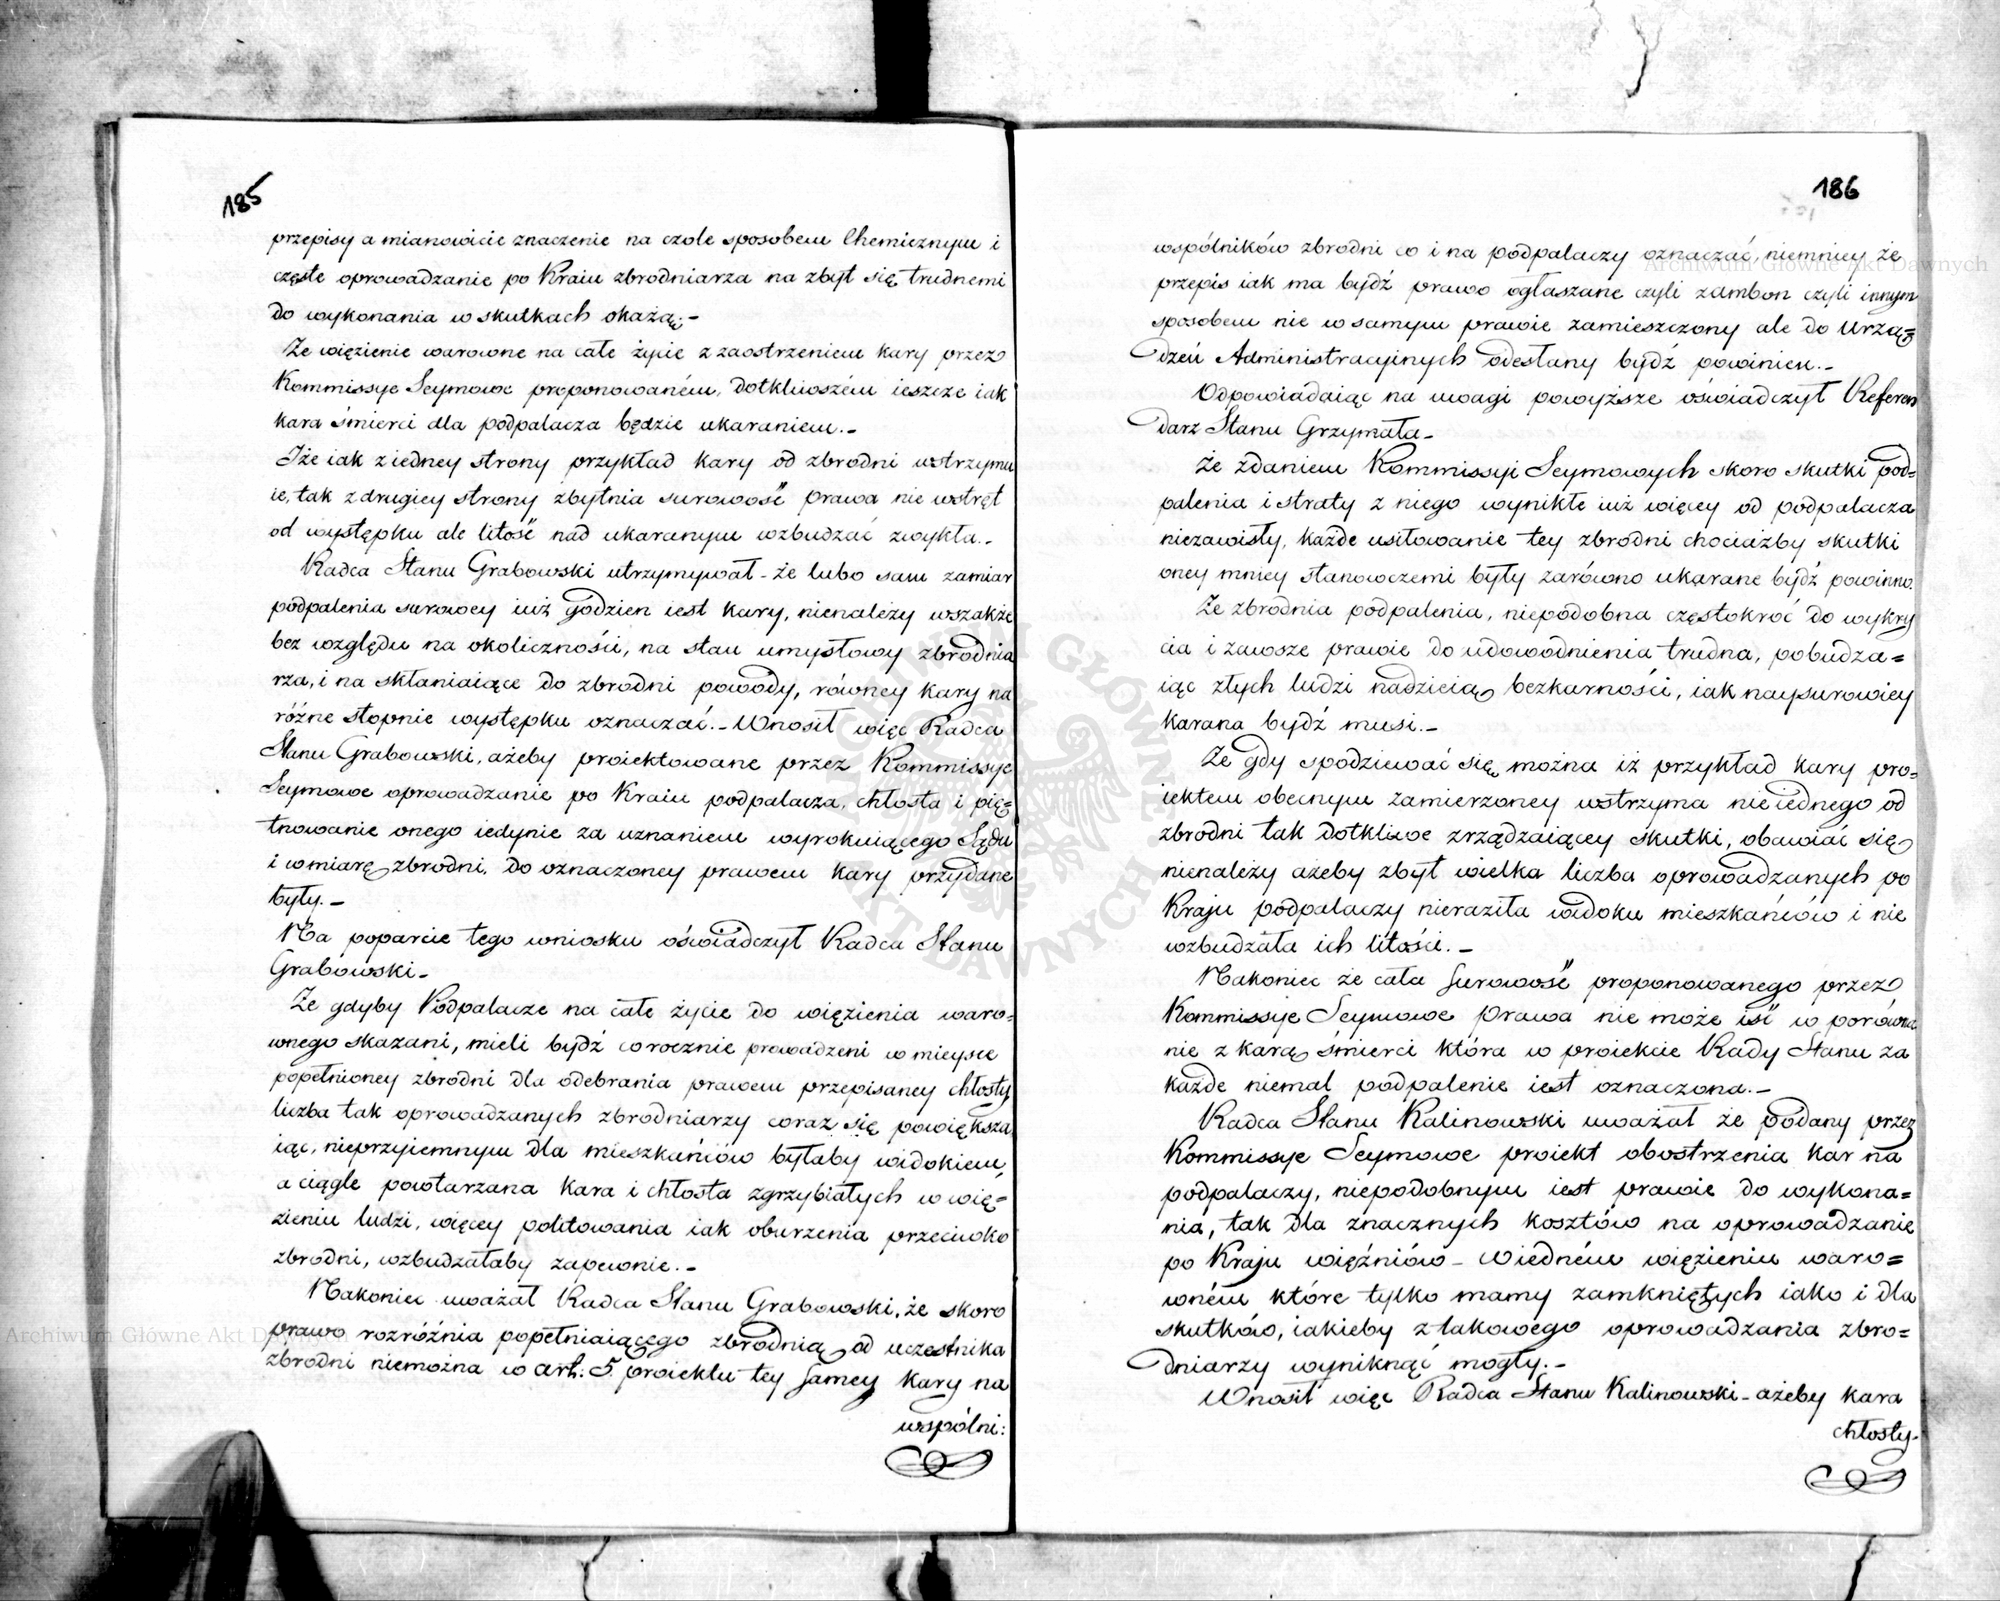 185
przepisy a mianowicie znaczenie na czole sposobem Chemicznym i
częste oprowadzanie po Kraiu zbrodniarza na zbyt się trudnemi
do wykonania w skutkach okażą.-
Że więzienie warowne na całe życie z zaostrzeniem kary przez
Kommissye Seymowe proponowaném, dotkliwszém ieszcze iak
kara śmierci dla podpalacza będzie ukaraniem.-
Iże iak z iedney strony przykład kary od zbrodni wstrzymu
ie, tak z drugiey strony zbytnia surowość prawa nie wstręt
od występku ale litość nad ukaranym wzbudzać zwykła.-
Radca Stanu Grabowski utrzymywał - że lubo sam zamiar
podpalenia surowey iuż godzien iest kary, nienależy wszakże
bez względu na okoliczności, na stan umysłowy zbrodnia
rza, i na skłaniaiące do zbrodni powody, równey kary na
różne stopnie występku oznaczać.- Wnosił więc Radca
Stanu Grabowski, ażeby proiektowane przez Kommissye
Seymowe oprowadzanie po Kraiu podpalacza, chłosta i pię=
tnowanie onego iedynie za uznaniem wyrokuiącego Sądu
i w miarę zbrodni, do oznaczoney prawem kary przydane
były.-
Na poparcie tego wniosku oświadczył Radca Stanu
Grabowski-
Że gdyby Podpalacze na całe życie do więzienia waro=
wnego skazani, mieli bydź corocznie prowadzeni w mieysce
popełnioney zbrodni dla odebrania prawem przepisaney chłosty
liczba tak oprowadzanych zbrodniarzy coraz się powiększa
iąc, nieprzyiemnym dla mieszkańców byłaby widokiem,
a ciągle powtarzana kara i chłosta zgrzybiałych w wię=
zieniu ludzi, więcey politowania iak oburzenia przeciwko
zbrodni, wzbudzałaby zapewnie.-
Nakoniec uważał Radca Stanu Grabowski, że skoro
prawo rozróźnia popełniaiącego zbrodnią od uczestnika
zbrodni niemożna w art: 5 proiektu tey samey kary na
wspólni:
186
wspólników zbrodni co i na podpalaczy oznaczać, niemniey że
przepis iak ma bydź prawo ogłaszane czyli z ambon czyli innym
sposobem nie w samym prawie zamieszczony ale do Urzą=
dzeń Administracyinych odesłany bydź powinien.-
Odpowiadaiąc na uwagi powyższe oświadczył Referen
darz Stanu Grzymała-
Że zdaniem Kommissyi Seymowych skoro skutki pod=
palenia i straty z niego wynikłe iuż więcey od podpalacza
niezawisły, każde usiłowanie tey zbrodni chociażby skutki
oney mniey stanowczemi były zarówno ukarane bydź powinno.
Że zbrodnia podpalenia, niepodobna częstokroć do wykry
cia i zawsze prawie do udowodnienia trudna, pobudza=
iąc złych ludzi nadzieią bezkarności, iak naysurowiey
karana bydź musi.-
Że gdy spodziewać się można iż przykład kary pro=
iektem obecnym zamierzoney wstrzyma nieiednego od
zbrodni tak dotkliwe zrządzaiącey skutki, obawiać się
nienależy ażeby zbyt wielka liczba oprowadzanych po
Kraju podpalaczy nieraziła widoku mieszkańców i nie
wzbudzała ich litości.-
Nakoniec że cała surowość proponowanego przez
Kommissye Seymowe Prawa nie może iść w porówna
nie z karą śmierci która w proiekcie Rady Stanu za
każde niemal podpalenie iest oznaczona.-
Radca Stanu Kalinowski uważał że podany przez
Kommissye Seymowe proiekt obostrzenia kar na
podpalaczy, niepodobnym iest prawie do wykona=
nia, tak dla znacznych kosztów na oprowadzanie
po Kraju więźniów - w iedném więzieniu waro=
wném które tylko mamy zamkniętych iako i dla
skutków, iakieby z takowego oprowadzania zbro=
dniarzy wyniknąć mogły.-
Wnosił więc Radca Stanu Kalinowski - ażeby kara
chłosty-
Archiwum Główne Akt Dawnych
Archiwum Główne Akt Dawnych
ARCHIWUM GŁÓWNE AKT DAWNYCH